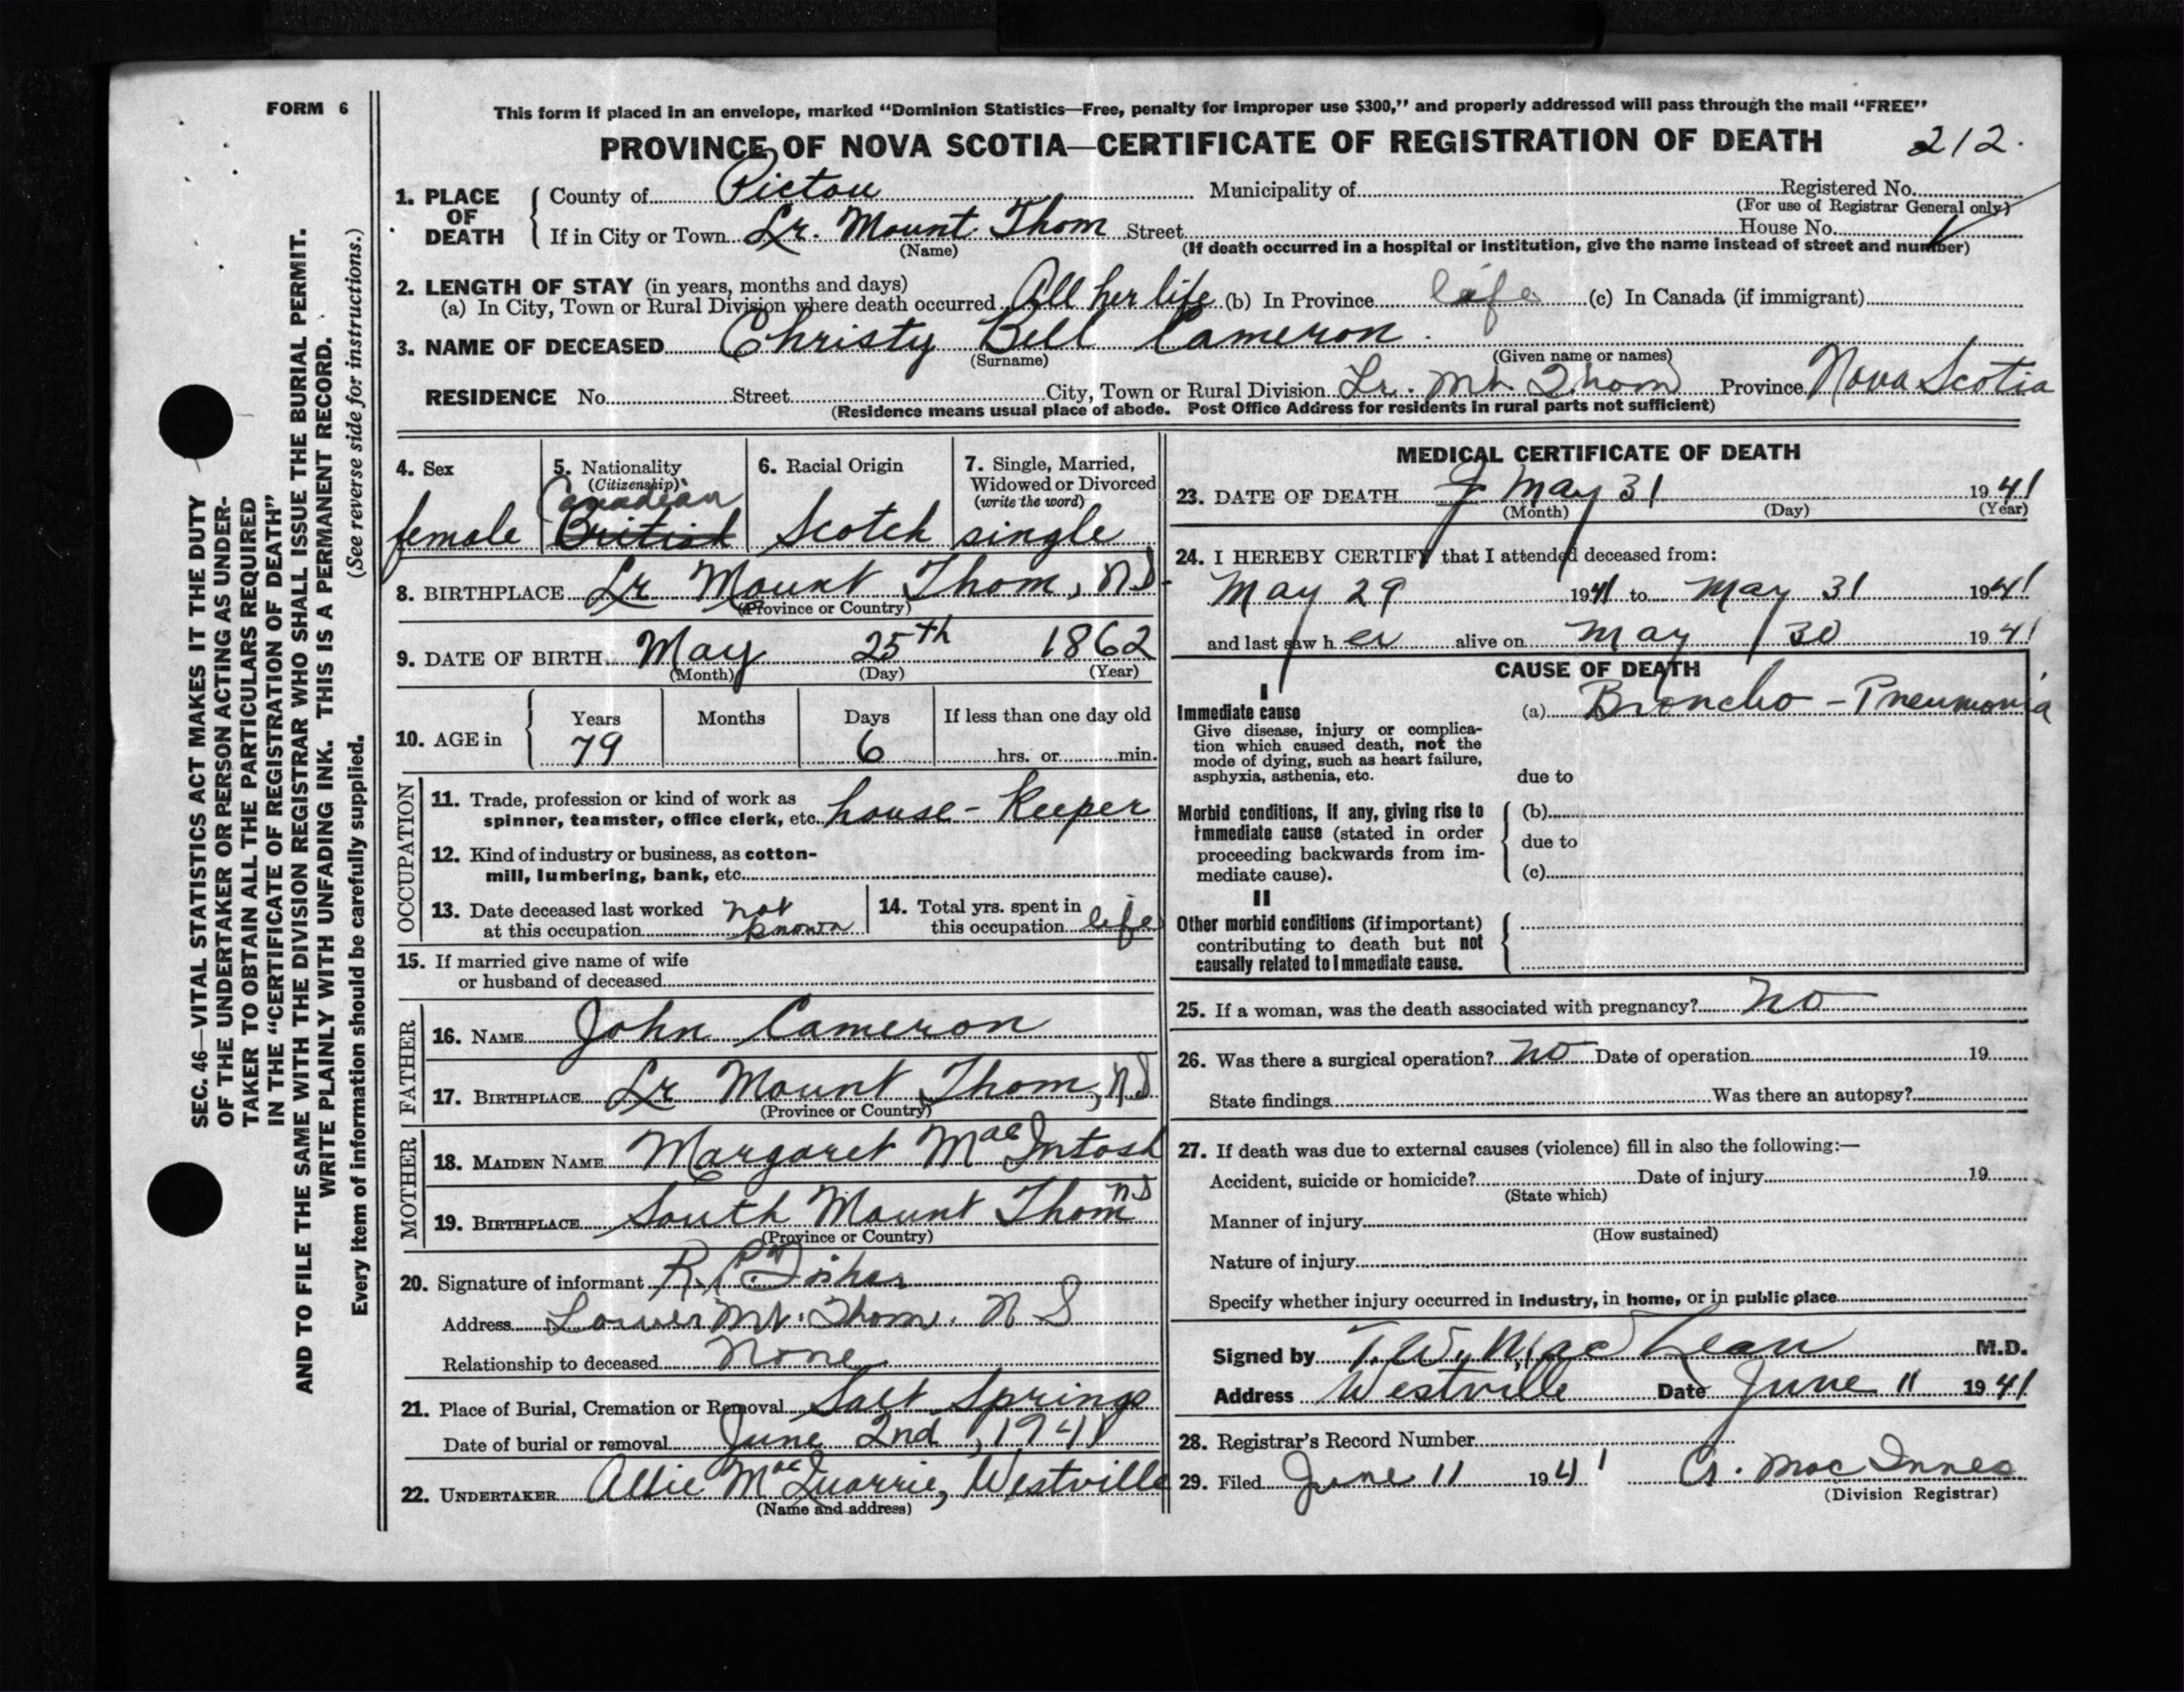 FORM 6
This form if placed in an envelope, marked “Dominion Statistics—Free, penalty for improper use $300,” and properly addressed will pass through the mail “FREE”
PROVINCE OF NOVA SCOTIA—CERTIFICATE OF REGISTRATION OF DEATH 212.
1. PLACE OF DEATH
County of Pictou Municipality of Registered No.
(For use of Registrar General only)
If in City or Town Lr. Mount Thom Street House No.
(Name) (If death occurred in a hospital or institution, give the name instead of street and number)
2. LENGTH OF STAY (in years, months and days)
(a) In City, Town or Rural Division where death occurred All her life (b) In Province life (c) In Canada (if immigrant)
3. NAME OF DECEASED Christy Bell Cameron.
(Surname) (Given name or names)
RESIDENCE No. Street City, Town or Rural Division Lr. Mt. Thom Province Nova Scotia
(Residence means usual place of abode. Post Office Address for residents in rural parts not sufficient)
4. Sex
female
5. Nationality
(Citizenship)
Canadian
British
6. Racial Origin
Scotch
7. Single, Married,
Widowed or Divorced
(write the word)
single
8. BIRTHPLACE Lr Mount Thom, N.S.
(Province or Country)
9. DATE OF BIRTH May 25th 1862
(Month) (Day) (Year)
10. AGE in
Years Months Days If less than one day old
79 6 hrs. or min.
OCCUPATION
11. Trade, profession or kind of work as
spinner, teamster, office clerk, etc. house-keeper
12. Kind of industry or business, as cotton-
mill, lumbering, bank, etc.
13. Date deceased last worked
at this occupation not known
14. Total yrs. spent in
this occupation life
15. If married give name of wife
or husband of deceased
FATHER
16. NAME John Cameron
17. BIRTHPLACE Lr Mount Thom, N.S
(Province or Country)
MOTHER
18. MAIDEN NAME Margaret MacIntosh
19. BIRTHPLACE South Mount Thom NS
(Province or Country)
20. Signature of informant R.
Address Lower Mt. Thom. N S
Relationship to deceased None
21. Place of Burial, Cremation or Removal Salt Springs
Date of burial or removal June 2nd, 1941
22. UNDERTAKER Allie MacQuarrie, Westville
(Name and address)
MEDICAL CERTIFICATE OF DEATH
23. DATE OF DEATH May 31 1941
(Month) (Day) (Year)
24. I HEREBY CERTIFY that I attended deceased from:
May 29 1941 to May 31 1941
and last saw her alive on May 30 1941
CAUSE OF DEATH
I
Immediate cause
Give disease, injury or complica-
tion which caused death, not the
mode of dying, such as heart failure,
asphyxia, asthenia, etc.
(a) Broncho-Pneumonia
due to
Morbid conditions, if any, giving rise to
immediate cause (stated in order
proceeding backwards from im-
mediate cause).
(b)
due to
(c)
II
Other morbid conditions (if important)
contributing to death but not
causally related to immediate cause.
25. If a woman, was the death associated with pregnancy? No
26. Was there a surgical operation? No Date of operation 19
State findings Was there an autopsy?
27. If death was due to external causes (violence) fill in also the following:—
Accident, suicide or homicide? Date of injury 19
(State which)
Manner of injury
(How sustained)
Nature of injury
Specify whether injury occurred in industry, in home, or in public place
Signed by T.W. MacLean M.D.
Address Westville Date June 11 1941
28. Registrar's Record Number
29. Filed June 11 1941 G. MacInnes
(Division Registrar)
SEC. 46—VITAL STATISTICS ACT MAKES IT THE DUTY
OF THE UNDERTAKER OR PERSON ACTING AS UNDER-
TAKER TO OBTAIN ALL THE PARTICULARS REQUIRED
IN THE “CERTIFICATE OF REGISTRATION OF DEATH”
AND TO FILE THE SAME WITH THE DIVISION REGISTRAR WHO SHALL ISSUE THE BURIAL PERMIT.
WRITE PLAINLY WITH UNFADING INK. THIS IS A PERMANENT RECORD.
Every item of information should be carefully supplied. (See reverse side for instructions.)